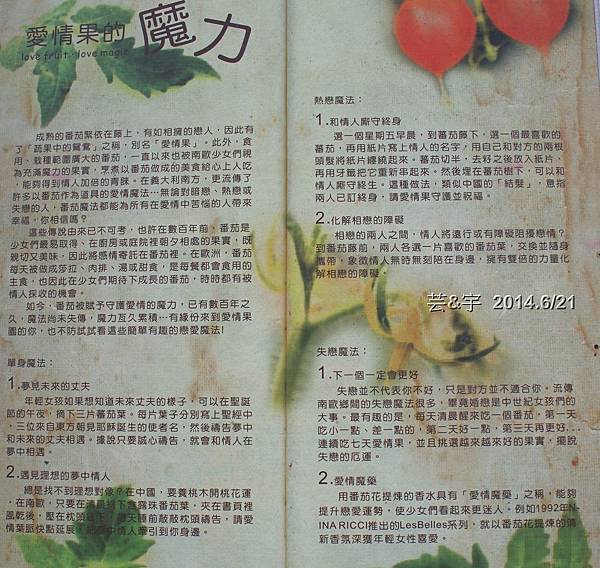 愛情果的魔力
love fruit．love magic
成熟的番茄緊依在藤上，有如相擁的戀人，因此有
了「蔬果中的鴛鴦」之稱，別名「愛情果」。此外，食
用、栽種範圍廣大的番茄，一直以來也被南歐少女們視
為充滿魔力的果實，烹煮以番茄做成的美食給心上人吃
，能夠得到情人加倍的青睞。在義大利南方，更流傳了
許多以番茄作為道具的愛情魔法…無論對暗戀、熱戀或
失戀的人，番茄魔法都能為所有在愛情中苦惱的人帶來
幸福，你相信嗎？
這些傳說由來已不可考，也許在數百年前，番茄是
少女們最易取得、在廚房或庭院裡朝夕相處的果實，既
親切又美味，因此將感情寄託在番茄裡。在歐洲，番茄
每天被做成莎拉、肉排、湯或甜食，是每餐都會食用的
主食，也因此在少女們期待下成長的番茄，時時都有被
情人採收的機會。
如今，番茄被賦予守護愛情的魔力，已有數百年之
久，魔法尚未失傳，魔力亙久累積…有緣份來到愛情果
園的你，也不妨試試看這些簡單有趣的戀愛魔法!
單身魔法：
1.夢見未來的丈夫
年輕女孩如果想知道未來丈夫的樣子，可以在聖誕
節的午夜，摘下三片蕃茄葉。每片葉子分別寫上聖經中
，三位來自東方朝見耶穌誕生的使者名，然後禱告夢中
和未來的丈夫相遇。據說只要誠心禱告，就會和情人在
夢中相遇。
2.遇見理想的夢中情人
總是找不到理想對像？在中國，要養桃木開桃花運
，在南歐，只要在清晨摘下含露珠番茄葉，夾在書頁裡
風乾後，壓在枕頭底下，每天睡前敲敲枕頭禱告，請愛
情葉脈快點延展，把夢中情人牽引到你身邊。
熱戀魔法：
1.和情人廝守終身
選一個星期五早晨，到番茄藤下，選一個最喜歡的
番茄，再用紙片寫上情人的名字，用自己和對方的兩根
頭髮將紙片纏繞起來。番茄切半，去籽之後放入紙片，
再用牙籤把它重新串起來。然後埋在番茄樹下，可以和
情人廝守終生。這種做法，類似中國的「結髮」，意指
兩人已訂終身，請愛情果守護並祝福。
2.化解相戀的障礙
相戀的兩人之間，情人將遠行或有障礙阻擾戀情？
到番茄藤前，兩人各選一片喜歡的番茄葉，交換並隨身
攜帶，象徵情人無時無刻陪在身邊，擁有雙倍的力量化
解相戀的障礙。
芸&宇 2014.6/21
失戀魔法：
1.下一個一定會更好
失戀並不代表你不好，只是對方並不適合你。流傳
南歐鄉間的失戀魔法很多，畢竟婚戀是中世紀女孩們的
大事。最有趣的是，每天清晨醒來吃一個番茄，第一天
吃小一點、差一點的，第二天好一點，第三天再更好....
連續吃七天愛情果，並且挑選越來越來好的果實，擺脫
失戀的厄運。
2.愛情魔藥
用番茄花提煉的香水具有「愛情魔藥」之稱，能夠
提升戀愛運勢，使少女們看起來更迷人。例如1992年N-
INA RICCI推出的LesBelles系列，就以番茄花提煉的清
新香氛深獲年輕女性喜愛。